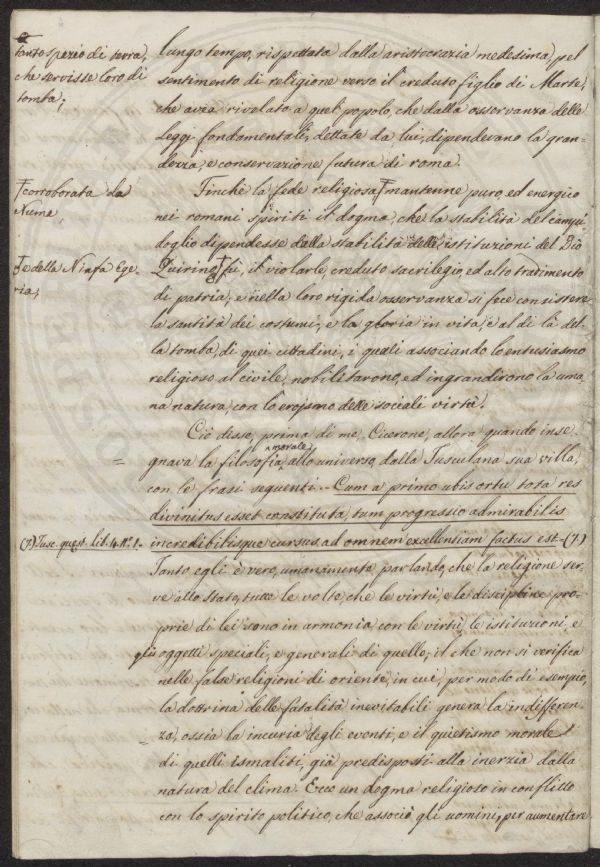 Ŧanto spazio di terra,
che servisse loro di
tomba;
lungo tempo, rispettata dalla aristocrazia medesima, pel
sentimento di religione verso il creduto figlio di Marte,
che avea rivelato a quel popolo, che dalla osservanza delle
Leggi fondamentali, dettate da lui, dipendevano la gran-
dezza, e conservazione futura di roma.
†corroborata da
Numa,
Finchè la fede religiosa,† mantenne puro, ed energico
nei romani spiriti il dogma, che la stabilità del campi-
doglio dipendesse dalla stabilità delle istituzioni del Dio
†e della Ninfa Ege-
ria,
Quirino,† fù, il violarle, creduto sacrilegio, ed alto tradimento
di patria; e nella loro rigida osservanza si fece consistere
la santità dei costumi, e la gloria in vita, e al di là del-
la tomba, di quei cittadini, i quali associando lo entusiasmo
religioso al civile, nobilitarono, ed ingrandirono la uma-
na natura, con lo eroismo delle sociali virtù.
Ciò disse, prima di me, Cicerone, allora quando inse-
gnava la filosofia morale, allo universo, dalla Tusculana sua villa,
con le frasi seguenti — Cum a primo urbis ortu tota res
divinitus esset constituta, tum progressio admirabilis
(7) Tusc. quest. lib. 4. N.º 1.
incredibilisque cursus ad omnem excellentiam factus est — (7)
Tanto egli è vero, umanamente parlando, che la religione ser-
ve allo stato, tutte le volte, che le virtù, e le discipline pro-
prie di lei sono in armonia con le virtù, le istituzioni, e
gli oggetti speciali, e generali di quello, il che non si verifica
nelle false religioni di oriente, in cui, per modo di esempio,
la dottrina delle fatalità inevitabili genera la indifferen-
za, ossia la incuria degli eventi, e il quietismo morale
di quelli ismaliti, già predisposti alla inerzia dalla
natura del clima. Ecco un dogma religioso in conflitto
con lo spirito politico, che associò gli uomini, per aumentare